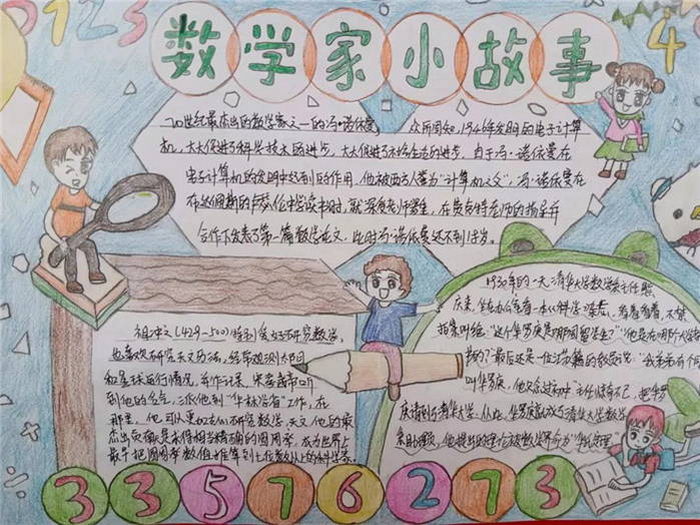 0123
数学家小故事
4
20世纪最杰出的数学家之一的冯·诺依曼
众所周知,1946年发明的电子计算
机,大大促进了科学技术的进步,大大促进了社会生活的进步,由于冯·诺依曼在
电子计算机的发明中起到的作用,他被西方人誉为"计算机之父",冯·诺依曼在
在布达佩斯的卢瑟伦中学读书时,就深受老师器重,在费克特老师的指导并
合作下发表了第一篇数学论文,此时冯·诺依曼还不到18岁。
祖冲之(429-500)特别爱好研究数学,
也喜欢研究天文历法,经常观测太阳
和星球运行情况,并作记录,宋孝武帝听
到他的名气,派他到"华林省"工作,在
那里,他可以更加专心研究数学、天文,他的最
杰出贡献是求得相当精确的圆周率,成为世界上
最早把圆周率数值推算到七位数以上的科学家。
1930年的一天,清华大学数学系主任熊
庆来,坐在办公室看一本《科学》杂志,看着看着,不禁
拍案叫绝:"这个华罗庚是哪国留学生?""他是在哪个大学
教的?"最后还是一位江苏籍的教员说:"我弟弟有个
叫华罗庚,他只念过初中"主任惊奇不已,把华罗
庚请到了清华大学,从此,华罗庚就成了清华大学数学
3 3 5 7 6 2 7 3